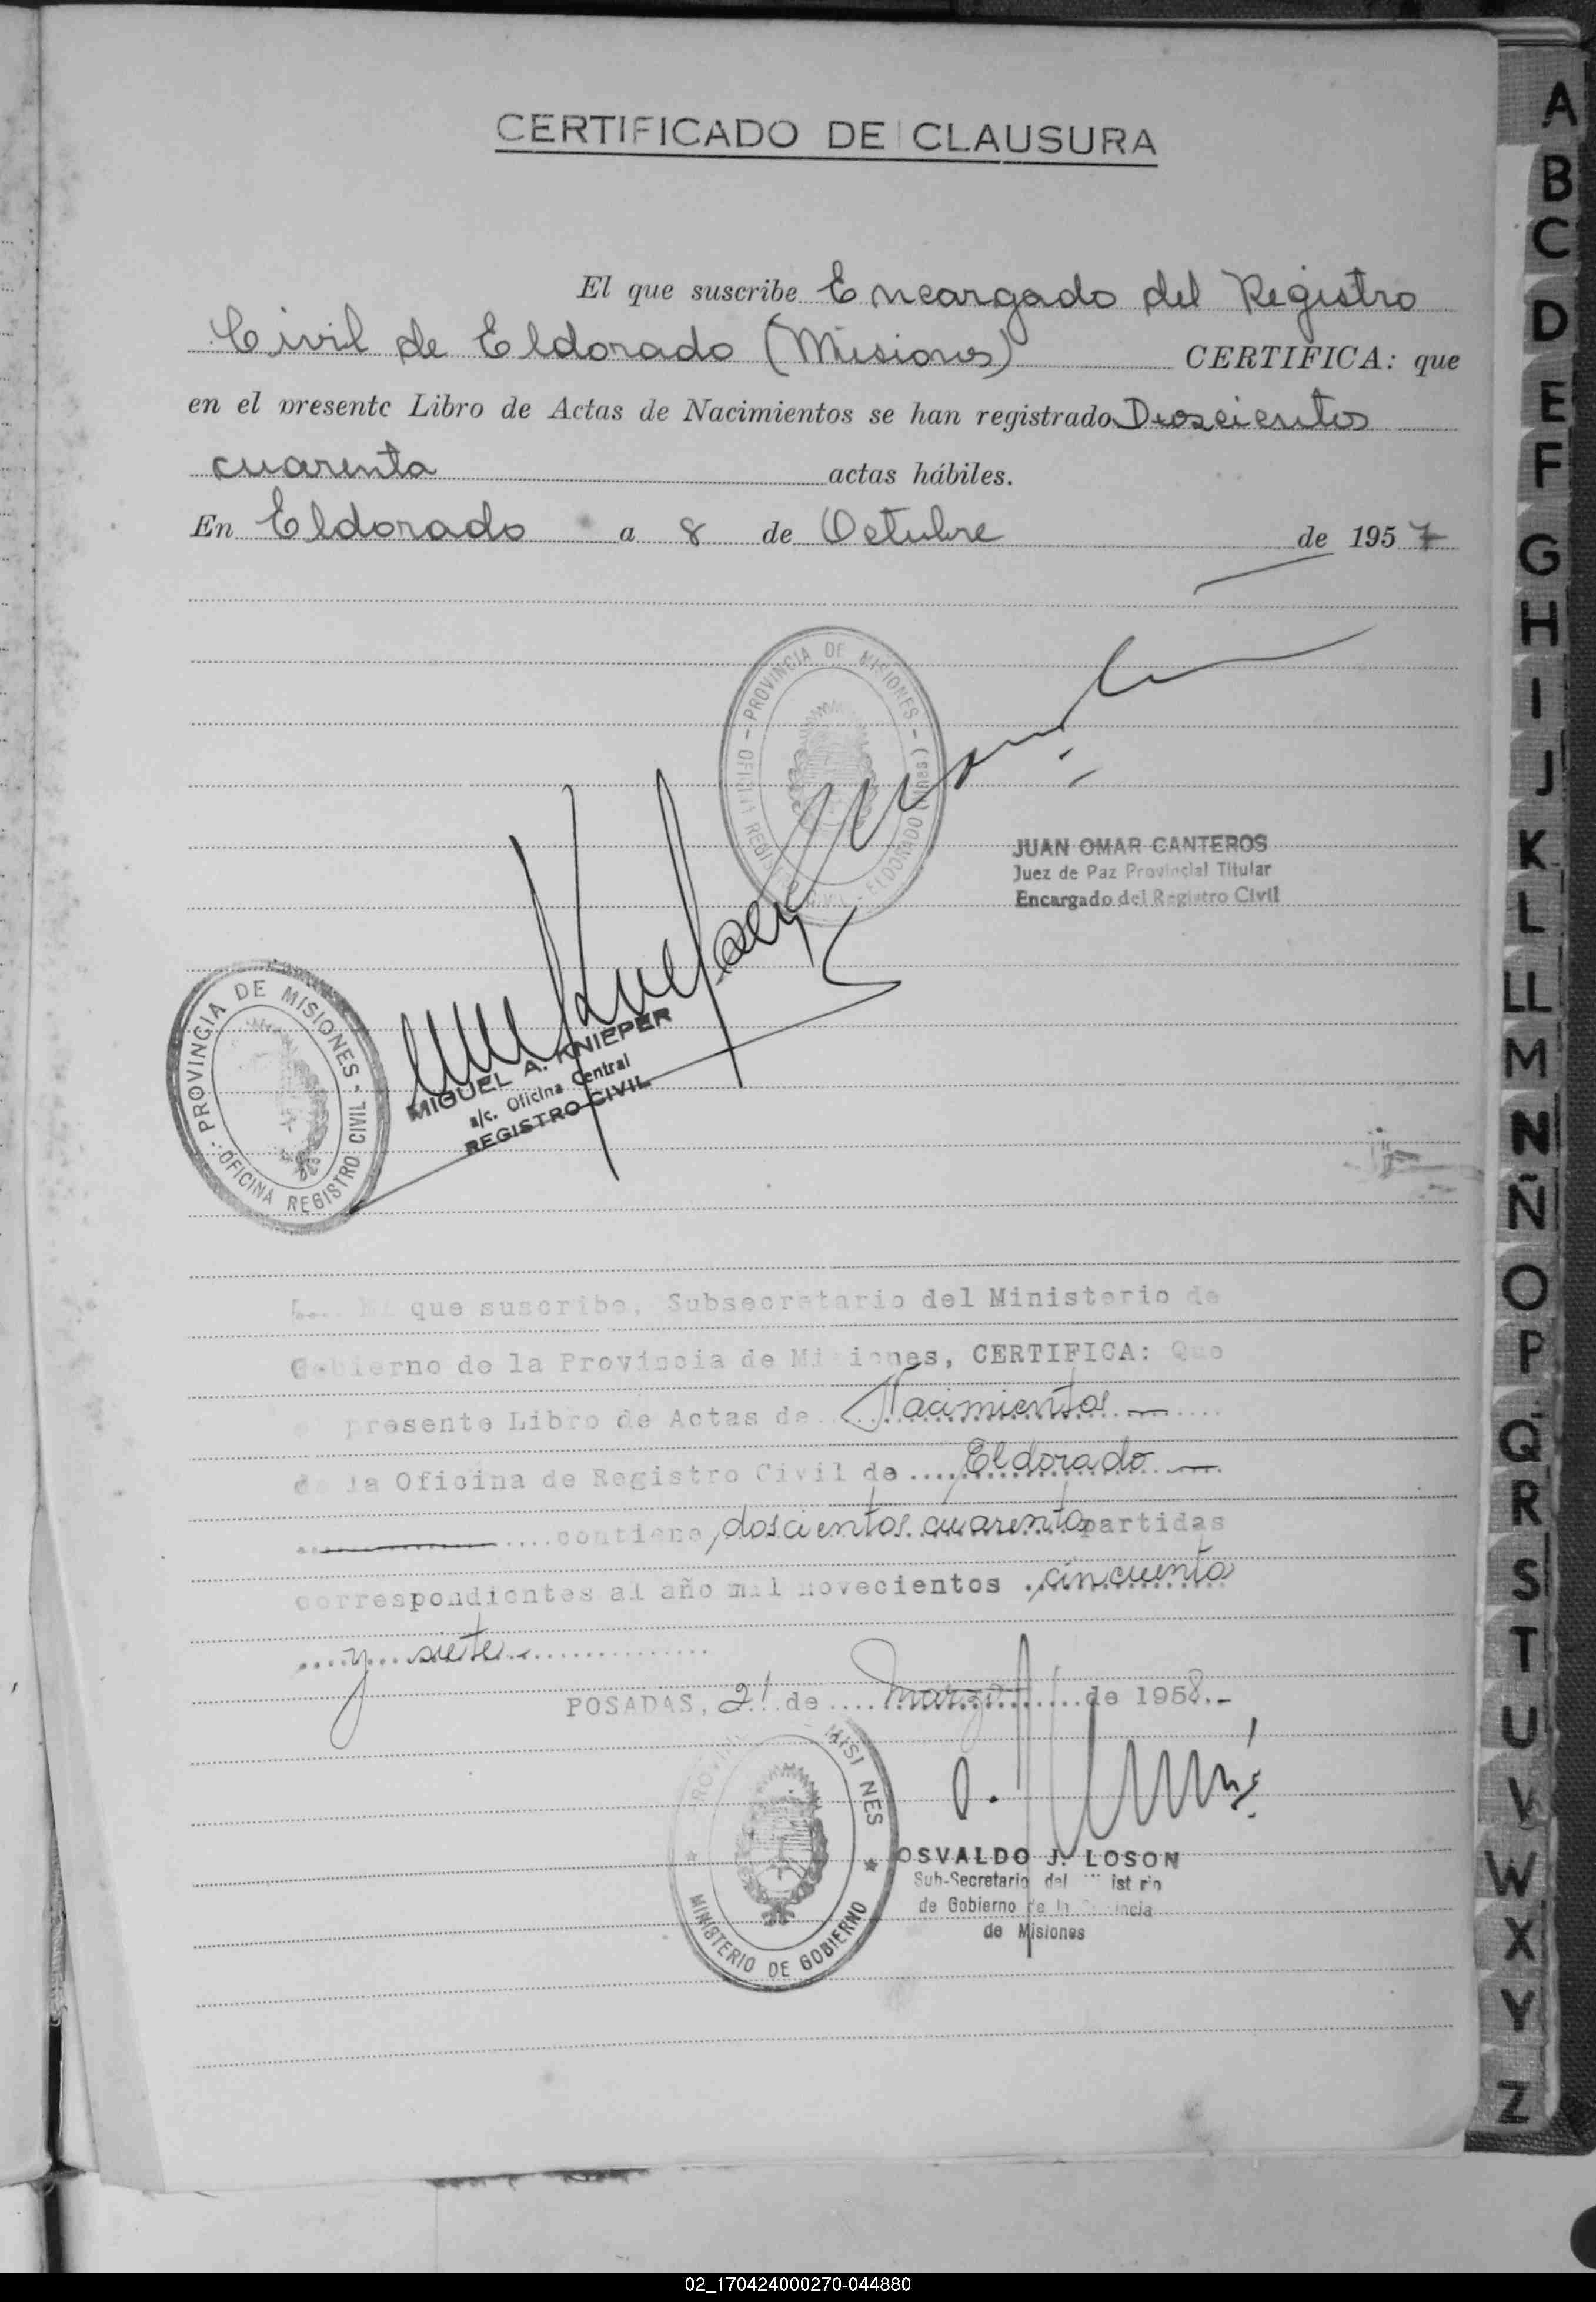 CERTIFICADO DE CLAUSURA
El que suscribe Encargado del Registro
Civil de Eldorado (Misiones) CERTIFICA: que
en el presente Libro de Actas de Nacimientos se han registrado Doscientos
cuarenta actas hábiles.
En Eldorado a 8 de Octubre de 1957
- PROVINCIA DE MISIONES -
REGISTRO CIVIL - ELDORADO (Mnes)
JUAN OMAR CANTEROS
Juez de Paz Provincial Titular
Encargado del Registro Civil
PROVINCIA DE MISIONES
OFICINA REGISTRO CIVIL
MIGUEL A. KNIEPER
a/c. Oficina Central
REGISTRO CIVIL
El que suscribe, Subsecretario del Ministerio de
Gobierno de la Provincia de Misiones, CERTIFICA: Que
presente Libro de Actas de Nacimientos
de la Oficina de Registro Civil de Eldorado
contiene doscientos cuarenta partidas
correspondientes al año mil novecientos cincuenta
y siete
POSADAS, 21 de marzo de 1958.-
MISI NES
MINISTERIO DE GOBIERNO
OSVALDO J. LOSON
Sub-Secretario del
de Gobierno de la
de Misiones
A
B
C
D
E
F
G
H
I
J
K
L
LL
M
N
Ñ
O
P
Q
R
S
T
U
V
W
X
Y
Z
02_170424000270-044880